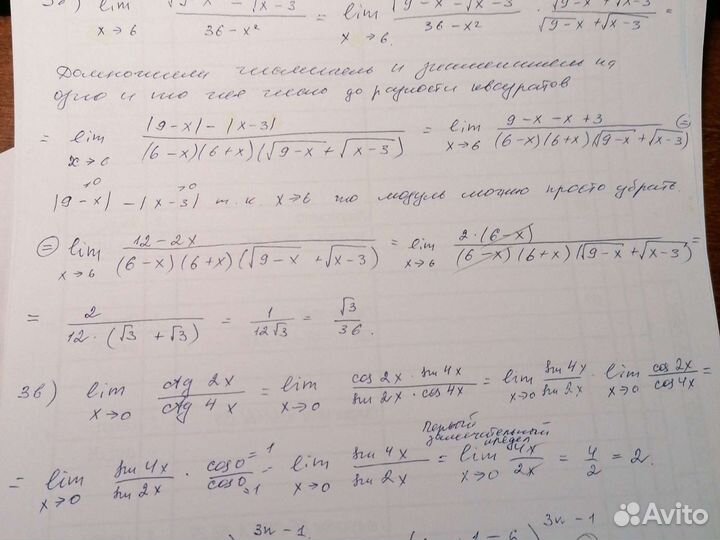 lim x→6 (√(9-x) - √(x-3))/(36-x²) = lim x→6 (√(9-x) - √(x-3))/(36-x²) · (√(9-x) + √(x-3))/(√(9-x) + √(x-3)) =
Домножили числитель и знаменатель на
одно и то же число до разности квадратов
= lim x→6 (|9-x| - |x-3|)/((6-x)(6+x)(√(9-x) + √(x-3))) = lim x→6 (9-x-x+3)/((6-x)(6+x)(√(9-x) + √(x-3))) =
|9-x| - |x-3| т.к. x→6 то модуль можно просто убрать
= lim x→6 (12-2x)/((6-x)(6+x)(√(9-x) + √(x-3))) = lim x→6 (2·(6-x))/((6-x)(6+x)(√(9-x) + √(x-3))) =
= 2/(12·(√3 + √3)) = 1/(12√3) = √3/36.
3б) lim x→0 (ctg 2x)/(ctg 4x) = lim x→0 (cos 2x · sin 4x)/(sin 2x · cos 4x) = lim x→0 (sin 4x)/(sin 2x) · lim x→0 (cos 2x)/(cos 4x) =
Первый
замечательный
предел
= lim x→0 (sin 4x)/(sin 2x) · (cos 0 = 1)/(cos 0 = 1) = lim x→0 (sin 4x)/(sin 2x) = lim x→0 4x/2x = 4/2 = 2.
3n-1 3n-1
Avito